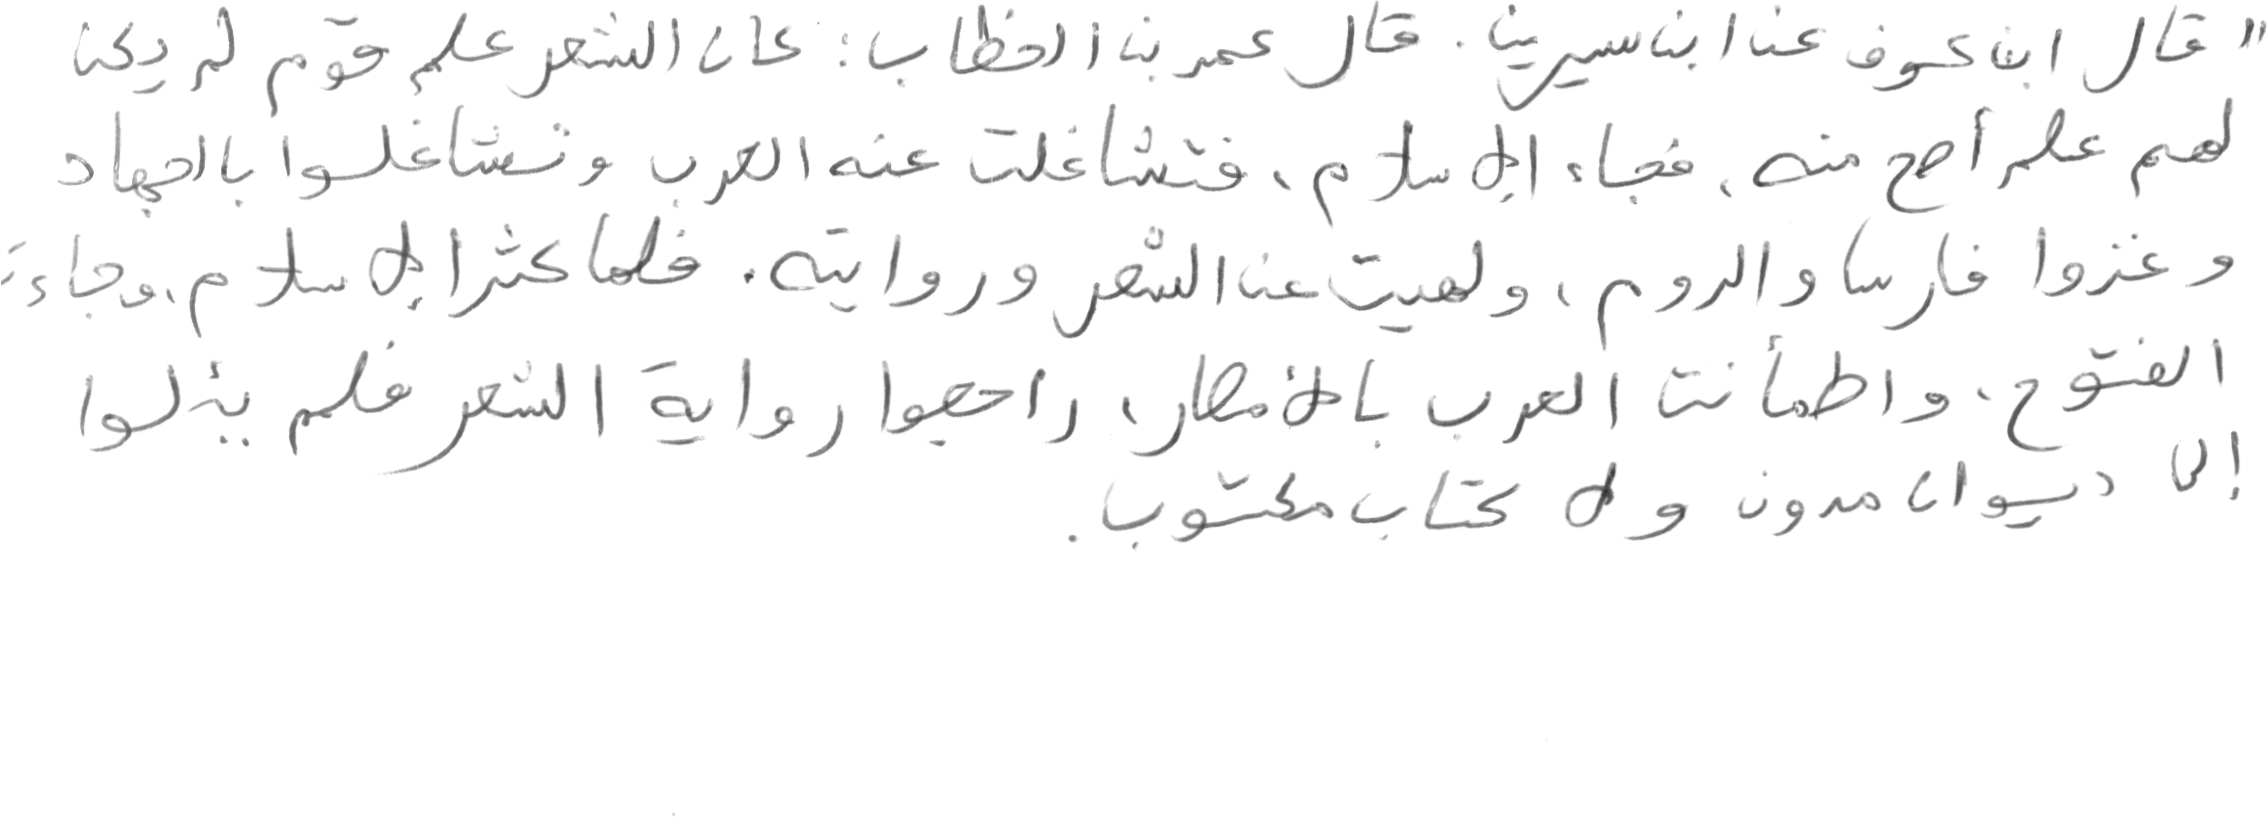 "قال ابن عوف عن ابن سيرين. قال عمر بن الخطاب: كان الشعر علم قوم لم يكن
لهم علم أصح منه، فجاء الإسلام، فتشاغلت عنه العرب وتشاغلوا بالجهاد
وغزوا فارسا والروم، ولهيت عن الشعر وروايته. فلما كثر الإسلام، وجاءت
الفتوح، واطمأنت العرب بالأمصار، راجعوا رواية الشعر فلم يئلوا
إلى ديوان مدون ولا كتاب مكتوب.